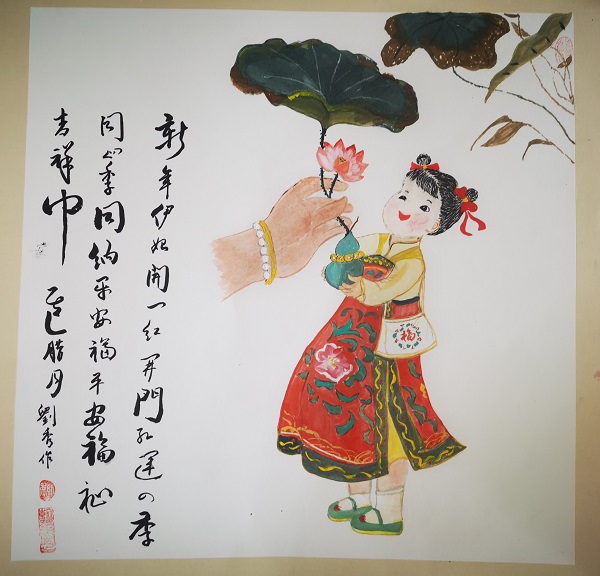 新年伊始開一红开門红運四季
同心季同纳平安福平安福祉
吉祥巾
乙巳腊月
劉秀作
福